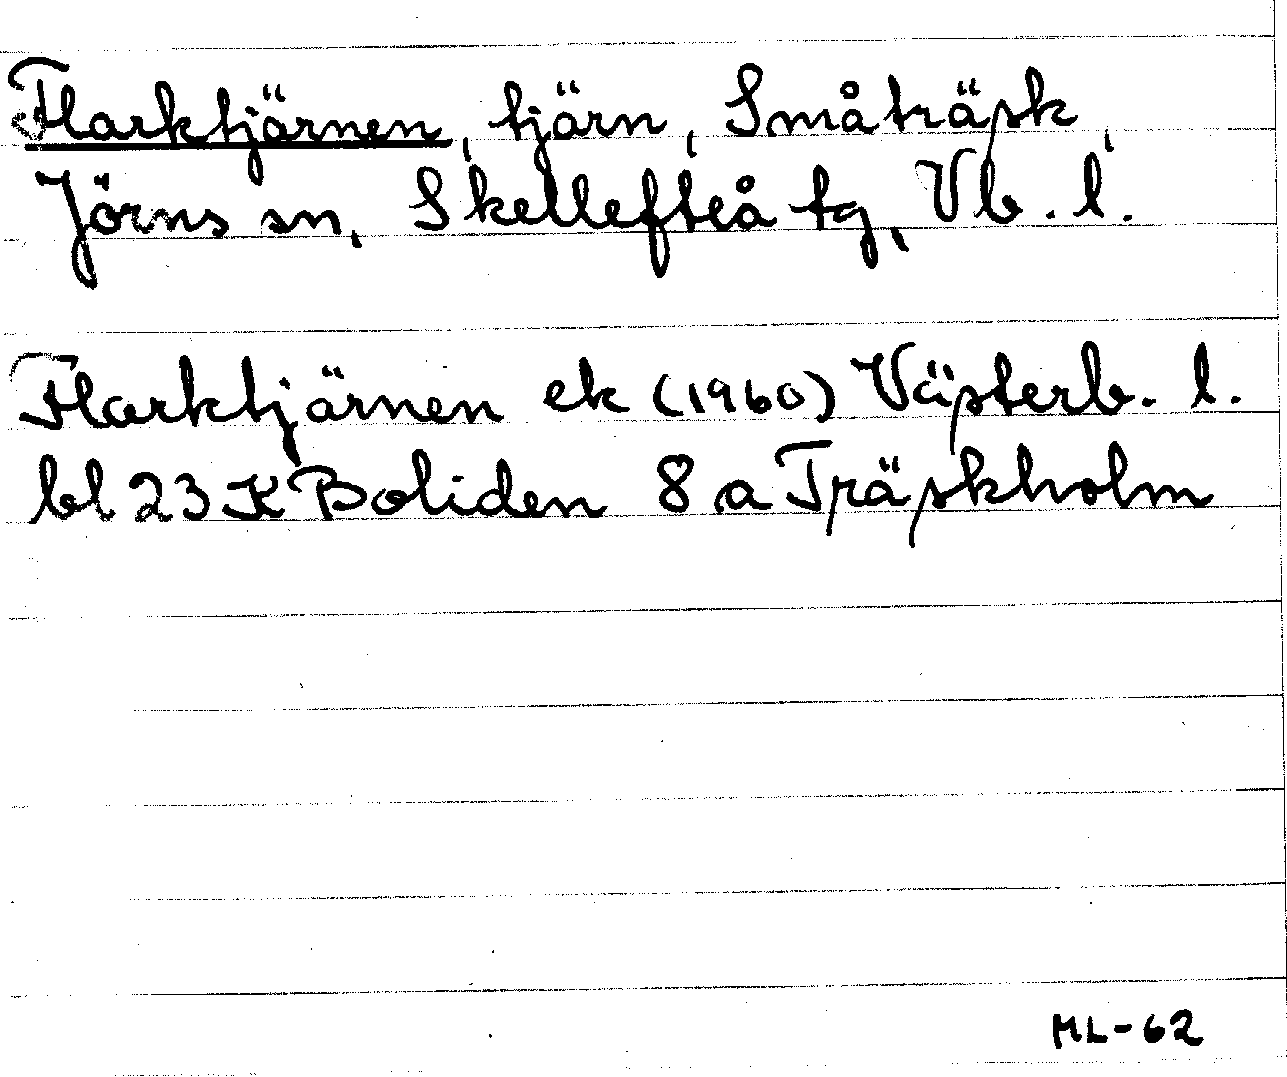 Flarktjärnen, tjärn, Småträsk,
Jörns sn, Skellefteå tg, Vb. l.
Flarktjärnen ek (1960) Västerb. l.
bl 23 K Boliden 8 a Träskholm
ML-62